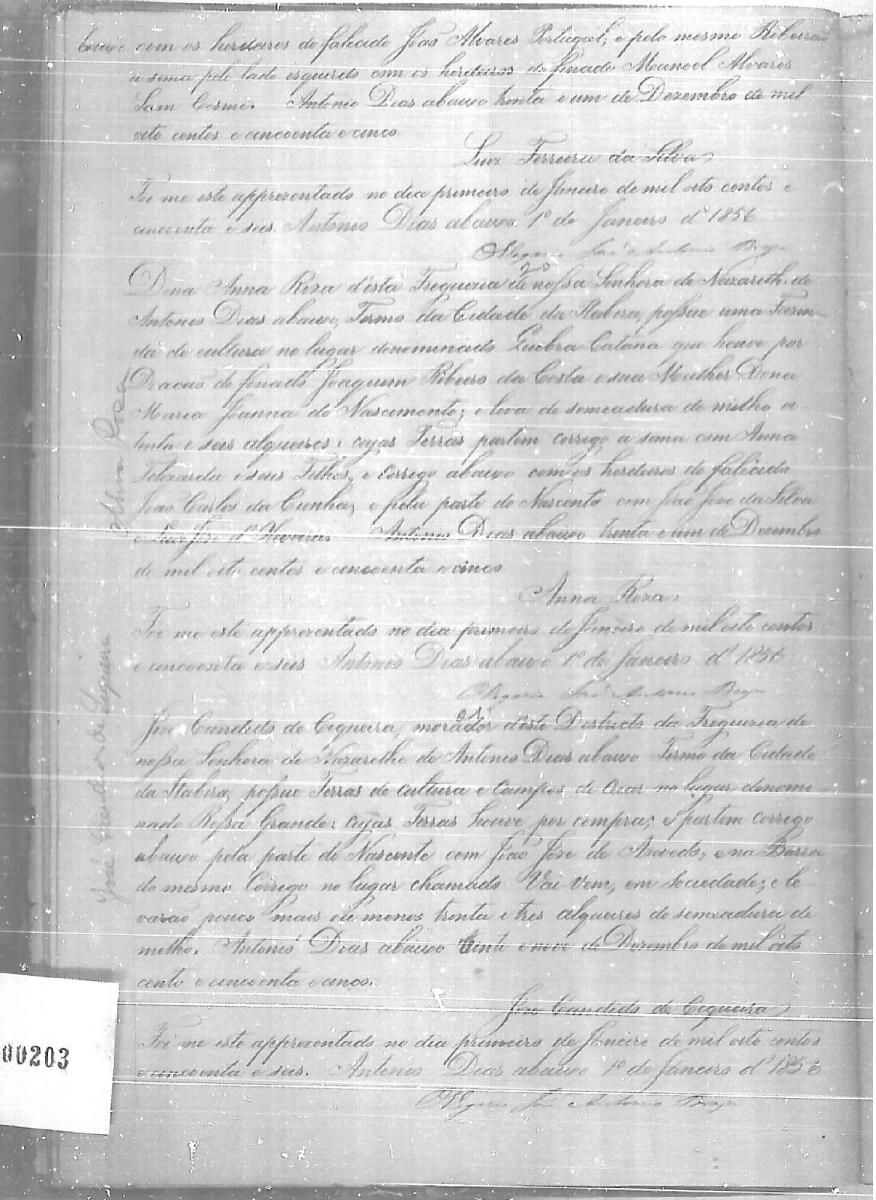 com os herdeiros do falecido João Alvares Portugal, e pelo mesmo Ribeirão
a sima pelo lado esquerdo com os herdeiros do finado Manoel Alvares
Sam Cosme. Antonio Dias abaixo trinta e um de Dezembro de mil
oito centos e cincoenta e cinco
Luiz Ferreira da Silva
Foi me este apprezentado no dia primeiro de Janeiro de mil oito centos e
cincoenta e seis. Antonio Dias abaixo 1º de Janeiro d'1856
José Antonio
20
Dona Anna Roza d'esta Freguezia de nossa Senhora de Nazareth de
Antonio Dias abaixo, Termo da Cidade da Itabira, possue uma Fazen-
da de cultura no lugar denominado Quebra Catana que houve por
Doacão do finado Joaquim Ribeiro da Costa e sua Mulher Dona
Maria Joanna do Nascimento; e leva de semeadura de milho
e seis alqueires: cujas Terras partem corrigo a sima com Anna
e seus Filhos, e corrigo abaixo com os herdeiros do falecido
João Carlos da Cunha, e pela parte do Nascente com João Jose da Silva
e Luiz Jose d'Oliveira. Antonio Dias abaixo trinta e um de Dezembro
de mil oito centos e cincoenta e cinco
Anna Roza
Foi me este apprezentado no dia primeiro de Janeiro de mil oito centos
e cincoenta e seis Antonio Dias abaixo 1º de Janeiro d'1856
José Antonio
21
Joze Candido de Ciqueira, morador d'este Districto da Freguezia de
nossa Senhora de Nazareth de Antonio Dias abaixo Termo da Cidade
da Itabira, possue Terras de cultura e Campos de Criar no lugar denomi
nado Rossa Grande: cujas Terras houve por compra; e partem corrigo
abaixo pela parte do Nascente com João Joze de Azevedo, e na Barra
do mesmo Corrigo no lugar chamado Vai Vem, em sociedade; e le-
varão pouco mais ou menos trinta e tres alqueires de semeadura de
milho. Antonio Dias abaixo vinte e nove de Dezembro de mil oito
cento e cincoenta e cinco.
Joze Candido de Ciqueira
Foi me este apprezentado no dia primeiro de Janeiro de mil oito centos
e cincoenta e seis. Antonio Dias abaixo 1º de Janeiro d'1856
José Antonio
Rosa
José Candido de Siqueira
00203